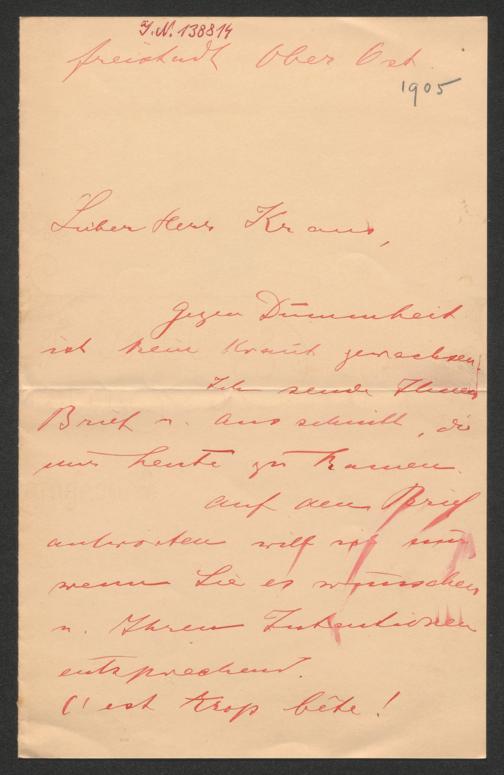 J.N. 138814
Freistadt Ober Öst.
1905
Lieber Herr Kraus,
Gegen Dummheit
ist kein Kraut gewachsen.
Ich sende Ihnen
Brief u. Ausschnitt, die
mir heute zu kamen.
Auf den Brief
antworten will ich nur
wenn Sie es wünschen
u. Ihren Intentionen
entsprechend.
C'est trop bête!